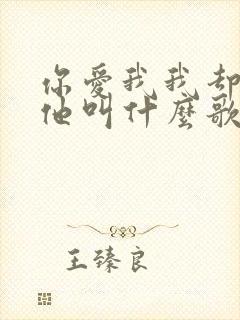 你愛我我却
他叫什麼歌
王臻良